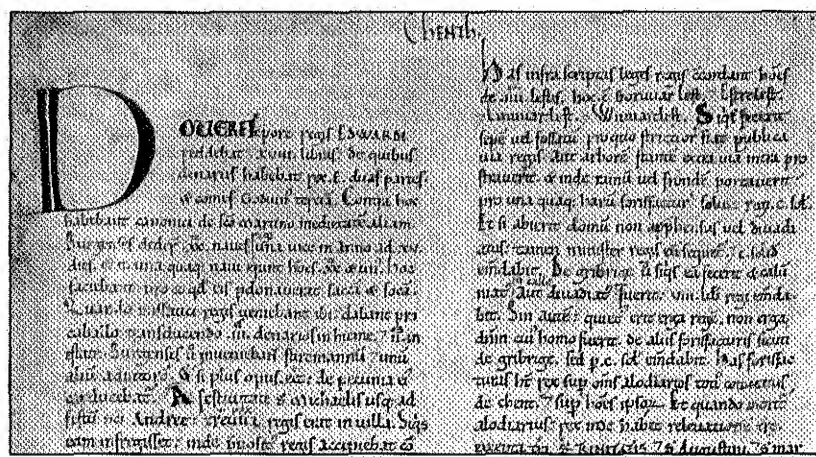 Chenth.
DOVERE tēpore regis EDWARDI
reddebat xviii. libras. de quibus
denariis habebat rex .E. duas partes.
& comes Goduin' tercia. Contra hoc
habebant canonici de sc̄o martino medietatē aliam.
Burgenses dederᵗ .xx. naues una uice in anno ad .xv.
dies. & in una quaq; naui erant hōes .xx. & un'. hoc
faciebant pro eo qd̄ eis pdonauerat saccā & socā.
Quando missatici regis ueniebant ibi. dabant pro
caballo transducendo .iii. denarios in hieme. 7 .ii. in
estate. Burgenses ū inueniebant stiremannū 7 unū
aliū adiutorē. & si plus opus eēt. de pecunia ei'
conducebat'. A festiuitate S Michaelis usq; ad
festū sc̄i Andreę. treuua regis erat in uilla. Siq̄s
eam infregisset. inde pposit' regis accipiebat cō
Has infra scriptas leges regis cōcordant hōes
de .iiii. lestis. hoc .ē. Boruuar lest. Estrelest.
Linuuartlest. Wiuuartlest. Siq̄s fecerit
sepē uel fossatū pro quo strictior fiat publica
uia regis. aut arborē stantē extra uiā intra pro
strauerit. & inde ramū uel frondē portauerit
pro una quaq; harū forisfacturā soluet regi .c. sol.
Et si abierit domū non apphensus uel diuadi
atus. tamen minister regis eū sequet'. 7 .c. solid'
emdabit. De gribrige ū siq̄s eā fecerit & calū
niat' aut diuadiat' fuerit. .viii. lib' regi emda
bit. Sin autē. quiet' erit erga regē. non erga
dn̄m cui' homo fuerit. de aliis forisfacturis sicuti
de gribrige. sed p .c. sol' emdabit. Has forisfac
turas ht̄ rex sup om̄s alodiarios totī comitatus
de chent. 7 sup hōes ipsoꝝ. Et quando moritur
alodiarius. rex inde habet releuationē tr̄e.